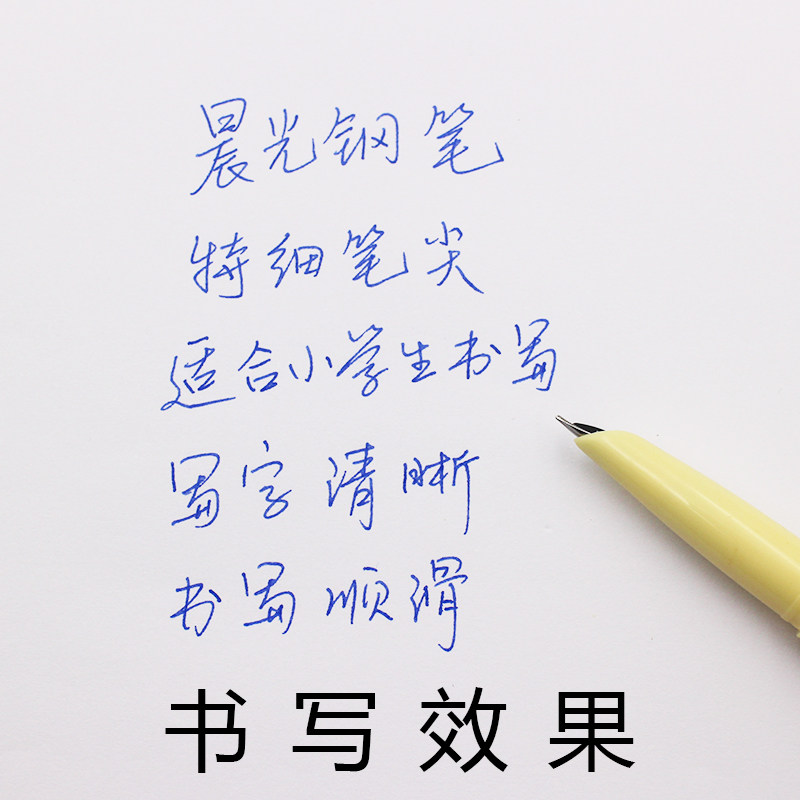 晨光钢笔
特细笔尖
适合小学生书写
写字清晰
书写顺滑
书写效果